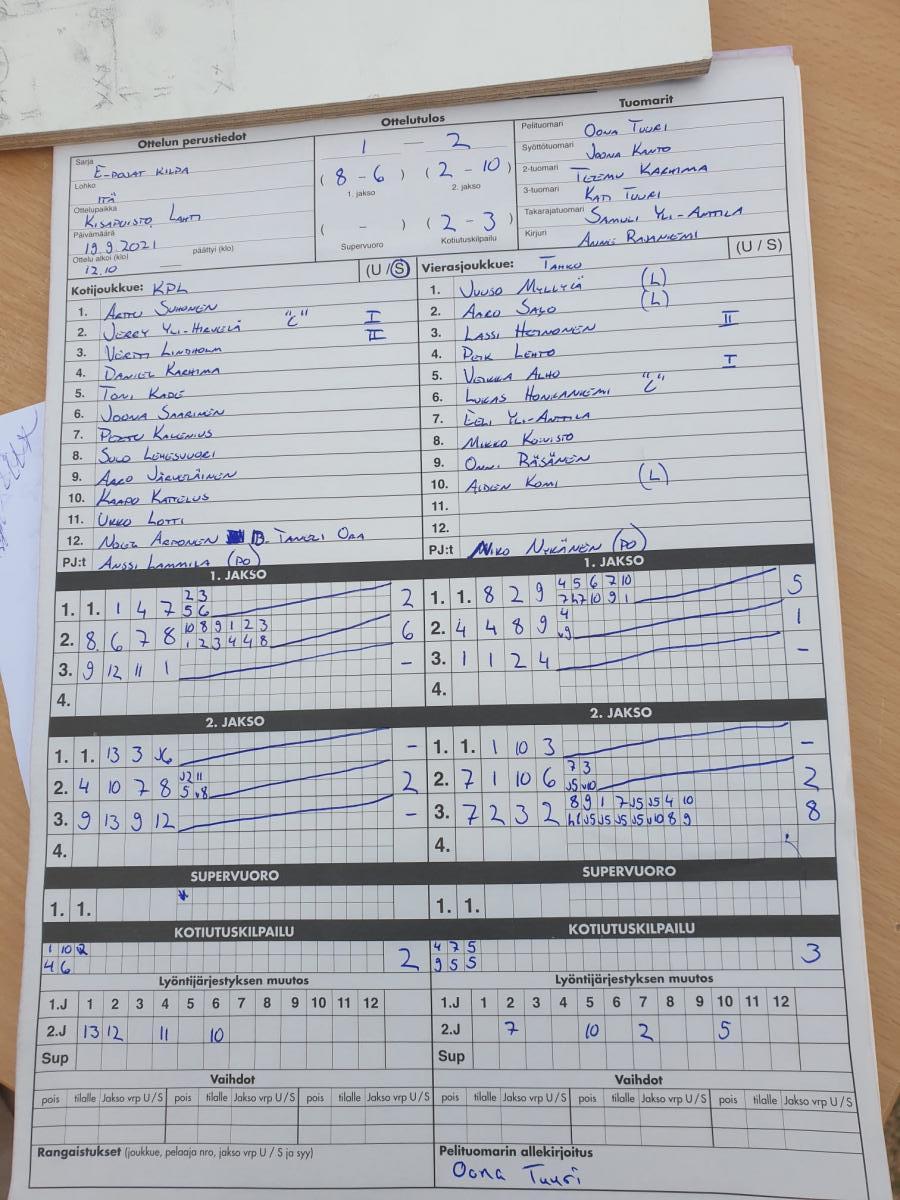 Ottelun perustiedot
Ottelutulos
Tuomarit
Sarja E-POJAT KILPA
Lohko ITÄ
Ottelupaikka KISAPUISTO, LAHTI
Päivämäärä 19.9.2021
Ottelu alkoi (klo) 12.10 päättyi (klo)
1 — 2
(8 - 6) (2 - 10)
1. jakso 2. jakso
( - ) (2 - 3)
Supervuoro Kotiutuskilpailu
Pelituomari OONA TUURI
Syöttötuomari JOONA KANTO
2-tuomari TEEMU KARHIMA
3-tuomari KATI TUURI
Takarajatuomari SAMULI YLI-ANTTILA
Kirjuri ANNE RAJANIEMI
Kotijoukkue: KPL (U / S)
1. ARTTU SUHONEN
2. JERRY YLI-HIRVELÄ "C" I
3. VERTTI LINDHOLM II
4. DANIEL KARHIMA
5. TONI KADE
6. JOONA SAARINEN
7. PERTTU KALLENIUS
8. SULO LEHESVUORI
9. AARO JÄRVELÄINEN
10. KAAPO KATTELUS
11. UKKO LOTTI
12. NOEL ARPONEN 13. TANELI ORA
PJ:t ANSSI LAMMILA (PO)
Vierasjoukkue: TAHKO (U / S)
1. JUUSO MYLLYLÄ (L)
2. AARO SALO (L)
3. LASSI HEINONEN II
4. PEIK LEHTO
5. VEIKKA ALHO I
6. LUKAS HONKANIEMI "C"
7. EELI YLI-ANTTILA
8. MIKKO KOIVISTO
9. ONNI RÄSÄNEN
10. AIDEN KOMI (L)
11.
12.
PJ:t NIKO NYKÄNEN (PO)
1. JAKSO
1. 1. 1 4 7 2 3 2
5 6
2. 8 6 7 8 10 8 9 1 2 3 6
1 2 3 4 4 8
3. 9 12 11 1 –
4.
1. JAKSO
1. 1. 8 2 9 4 5 6 7 10 5
7 h7 10 9 1
2. 4 4 8 9 4 1
v9
3. 1 1 2 4 –
4.
2. JAKSO
1. 1. 13 3 J6 –
2. 4 10 7 8 J2 11 2
5 v8
3. 9 13 9 12 –
4.
2. JAKSO
1. 1. 1 10 3 –
2. 7 1 10 6 7 3 2
J5 v10
3. 7 2 3 2 8 9 1 7 J5 J5 4 10 8
h1 J5 J5 J5 J5 v10 8 9
4.
SUPERVUORO
1. 1.
SUPERVUORO
1. 1.
KOTIUTUSKILPAILU
1 10 2 2
4 6
KOTIUTUSKILPAILU
4 7 5 3
9 5 5
Lyöntijärjestyksen muutos
1.J 1 2 3 4 5 6 7 8 9 10 11 12
2.J 13 12 11 10
Sup
Lyöntijärjestyksen muutos
1.J 1 2 3 4 5 6 7 8 9 10 11 12
2.J 7 10 2 5
Sup
Vaihdot
pois tilalle Jakso vrp U / S pois tilalle Jakso vrp U / S pois tilalle Jakso vrp U / S
Vaihdot
pois tilalle Jakso vrp U / S pois tilalle Jakso vrp U / S pois tilalle Jakso vrp U / S
Rangaistukset (joukkue, pelaaja nro, jakso vrp U / S ja syy)
Pelituomarin allekirjoitus
Oona Tuuri